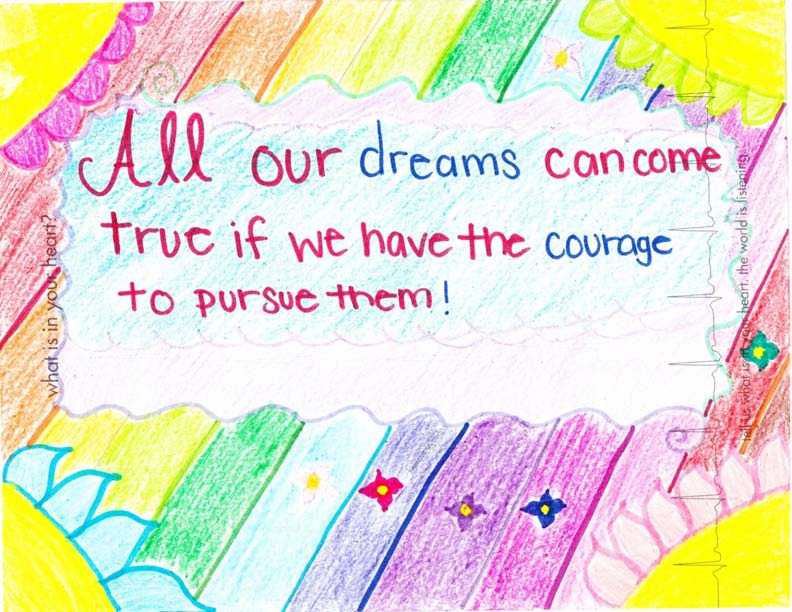 All our dreams can come
true if we have the courage
to pursue them!
what is in your heart?
tell us what is in your heart. the world is listening